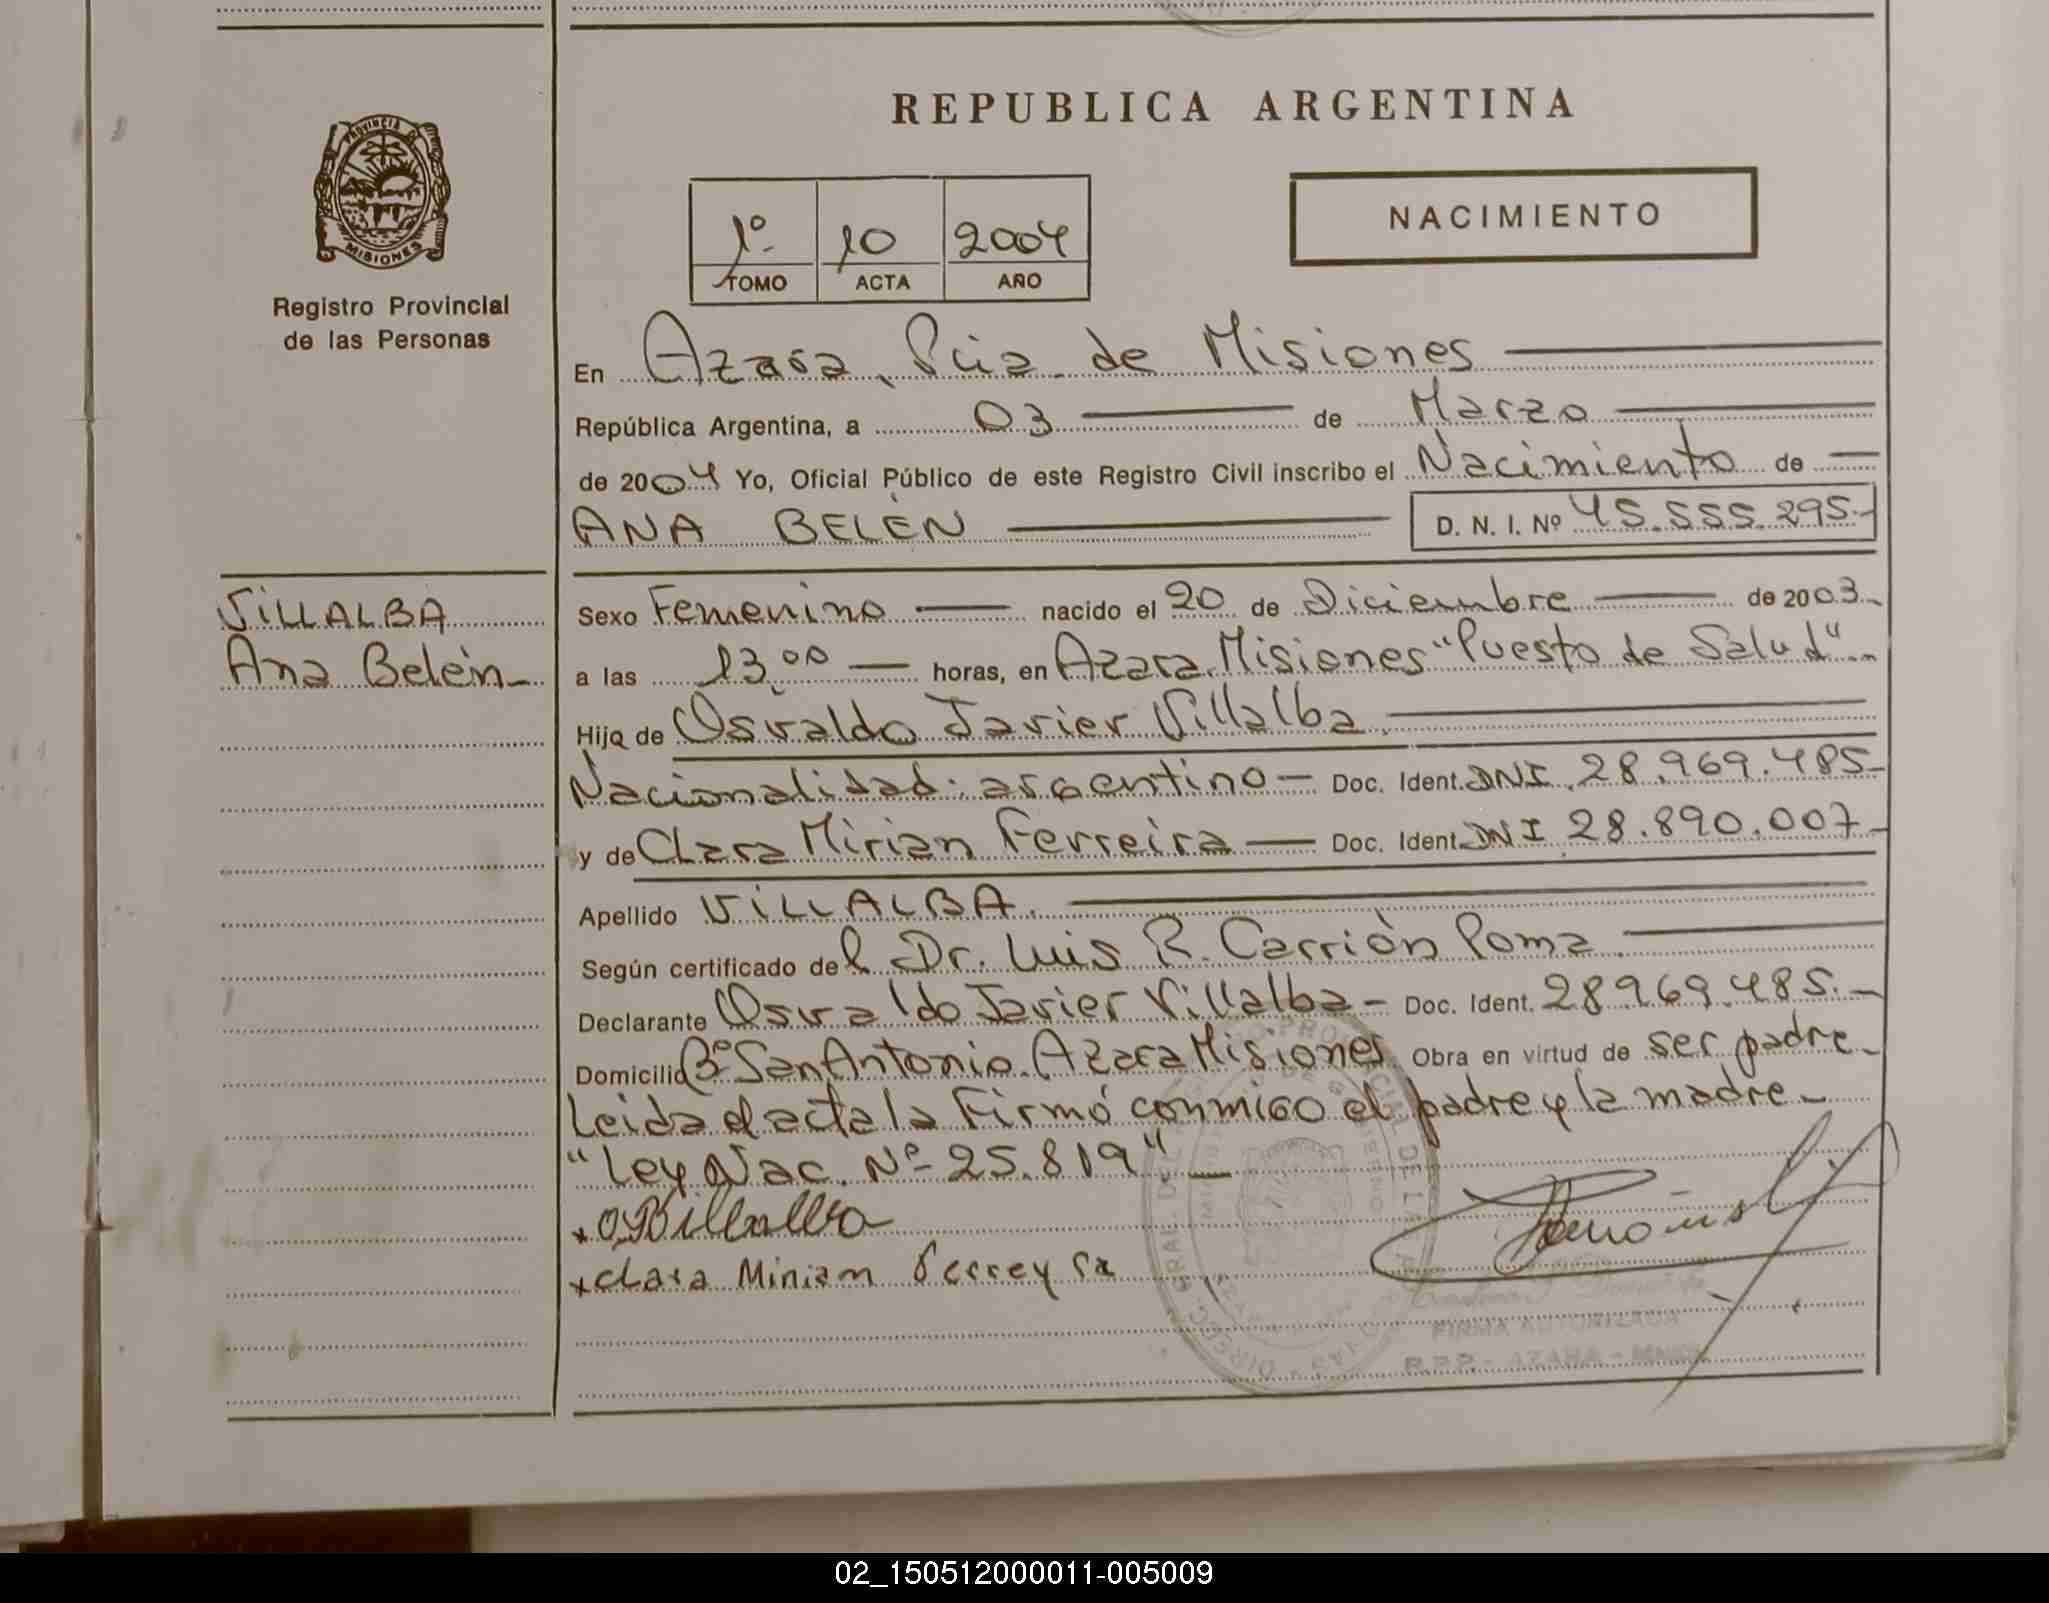 PROVINCIA DE
MISIONES
Registro Provincial
de las Personas
VILLALBA
Ana Belén
REPUBLICA ARGENTINA
1º 10 2004
TOMO ACTA AÑO
NACIMIENTO
En Azara, Pcia. de Misiones
República Argentina, a 03 de Marzo
de 2004 Yo, Oficial Público de este Registro Civil inscribo el Nacimiento de
ANA BELÉN D. N. I. Nº 45.555.295.-
Sexo Femenino nacido el 20 de Diciembre de 2003
a las 13,00 horas, en Azara, Misiones "Puesto de Salud"
Hija de Osvaldo Javier Villalba
Nacionalidad: argentino - Doc. Ident. DNI 28.969.485-
y de Clara Mirian Ferreira - Doc. Ident. DNI 28.890.007-
Apellido VILLALBA.
Según certificado del Dr. Luis R. Carrión Poma
Declarante Osvaldo Javier Villalba - Doc. Ident. 28969.485.-
Domicilio Bº San Antonio. Azara Misiones Obra en virtud de ser padre-
Leida el acta la Firmó conmigo el padre y la madre-
"Ley Nac. Nº 25.819"
x O Billallva
x Clara Miriam Ferreyra
FIRMA AUTORIZADA
R.P.P. - AZARA - MNES.
02_150512000011-005009